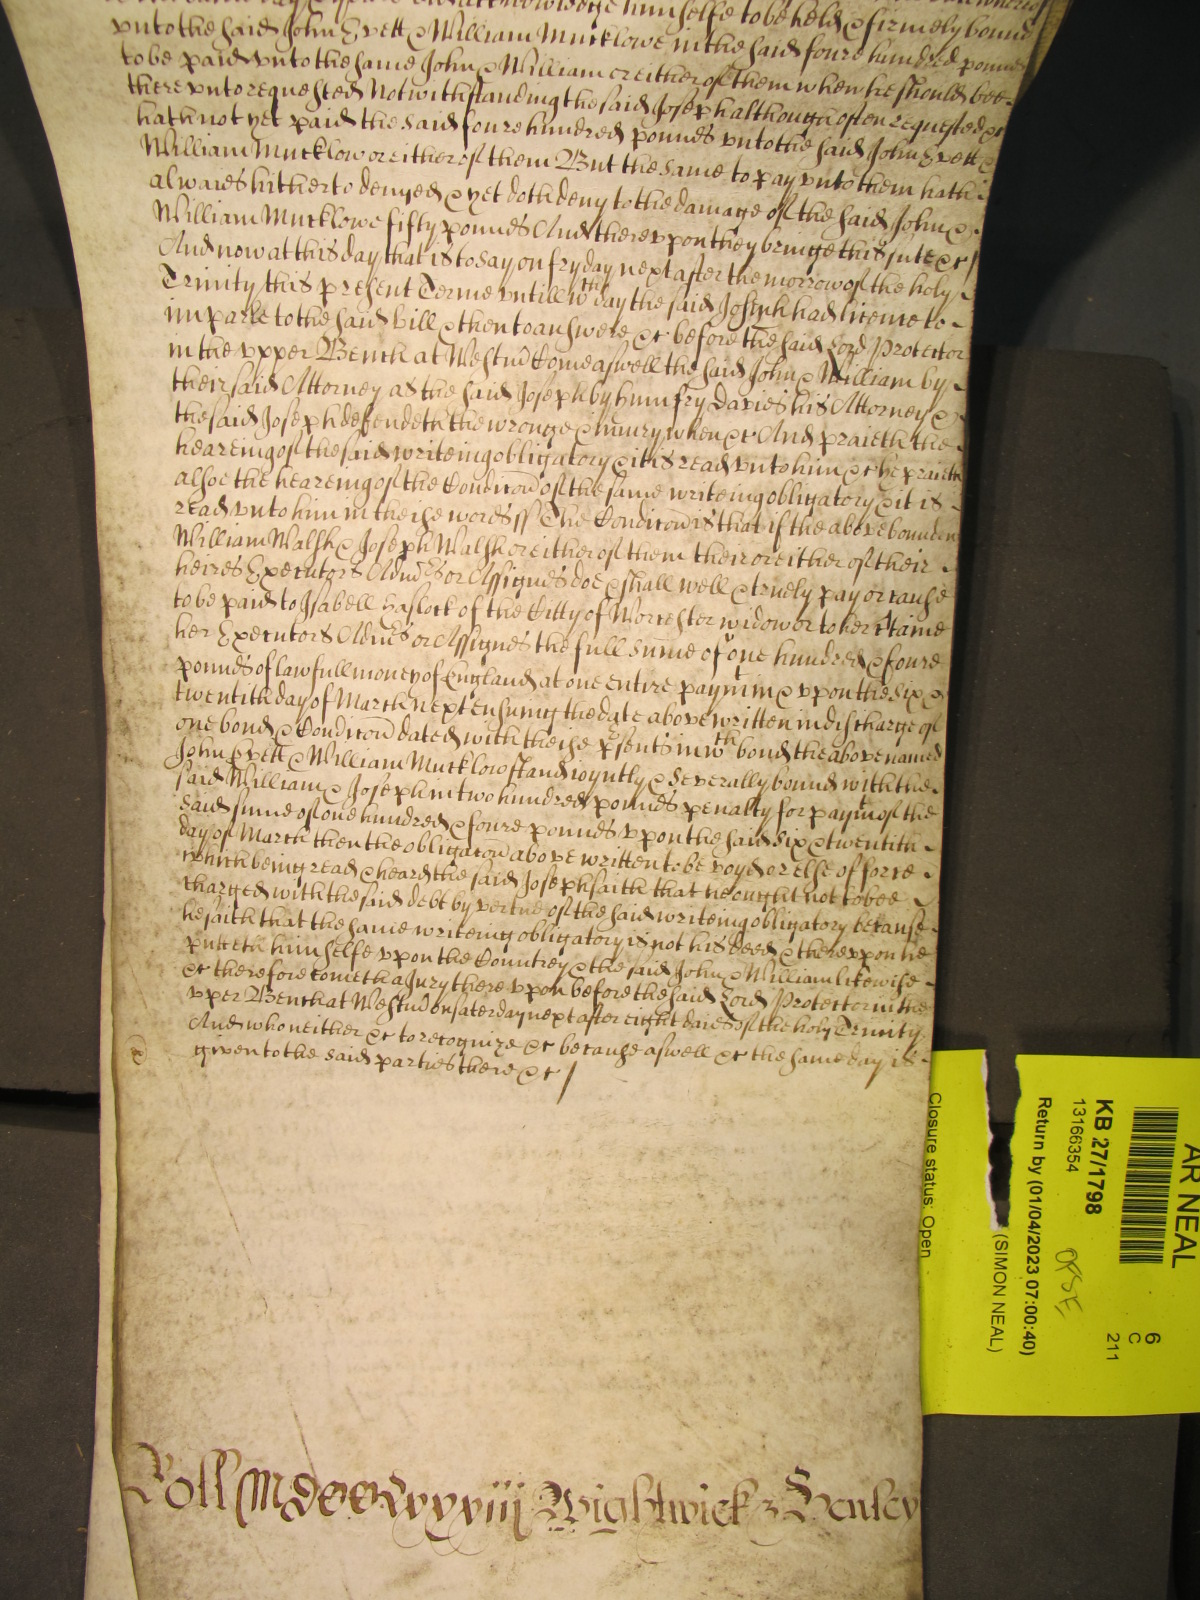 himselfe to be held & firmely bound
unto the said John Evett & William Mucklowe in the said foure hundred pounds
to be paid unto the same John & William or either of them when he should bee
thereunto requested Notwithstanding the said Joseph although often requested &c
hath not yet paid the said foure hundred pounds unto the said John Evett &
William Mucklow or either of them But the same to pay unto them hath
alwaies hitherto denyed & yet doth deny to the damage of the said John &
William Mucklowe fifty pounds And thereupon they bringe this suite &c /
And now at this day that is to say on fryday next after the morrow of the holy
Trinity this present Terme untill wch day the said Joseph had licence to
imparle to the said bill & then to answere &c before the said Lord Protector
in the upper Bench at Westmr Come aswell the said John & William by
their said Attorney as the said Joseph by humfry Davies his Attorney &
the said Joseph defendeth the wronge & iniury when &c And praieth the
heareing of the said writeing obligatory & it is read unto him &c he praieth
alsoe the heareing of the Condicon of the same writeing obligatory & it is
read unto him in theise words ss The Condicon is that if the above bounden
William Walsh & Joseph Walsh or either of them their or either of their
heires Executors Admrs or Assignes doe & shall well & truely pay or cause
to be paid to Isabell Haslock of the Citty of Worcester widow or to her
her Executors Admrs or Assignes the full sume of one hundred & foure
pounds of lawfull money of England at one entire paymt in & uppon the six &
twentith day of March next ensuing the date above written in discharge of
one bond & Condicon dated with theise psents in wch bond the above named
John Evett & William Mucklow stand ioyntly & severally bound with the
said William & Joseph in two hundred pounds penalty for paymt of the
said sume of one hundred & foure pounds uppon the said six & twentith
day of March then the obligacon above written to be voyd or else of force
which being read & heard the said Joseph saith that he ought not to bee
charged with the said debt by vertue of the said writeing obligatory because
he saith that the same writeing obligatory is not his deed & thereuppon he
putteth himselfe uppon the Countrey & the said John & William likewise
&c therefore cometh a Jury thereuppon before the said Lord Protector in the
upper Bench at Westmr on saterday next after eight daies of the holy Trinity
And who neither &c to recognize &c because aswell &c the same day is
given to the said parties there &c /
Roll Wightwick & Henley
AR NEAL
6
C
211
KB 27/1798
13166354
Return by (01/04/2023 07:00:40)
(SIMON NEAL)
Closure status: Open